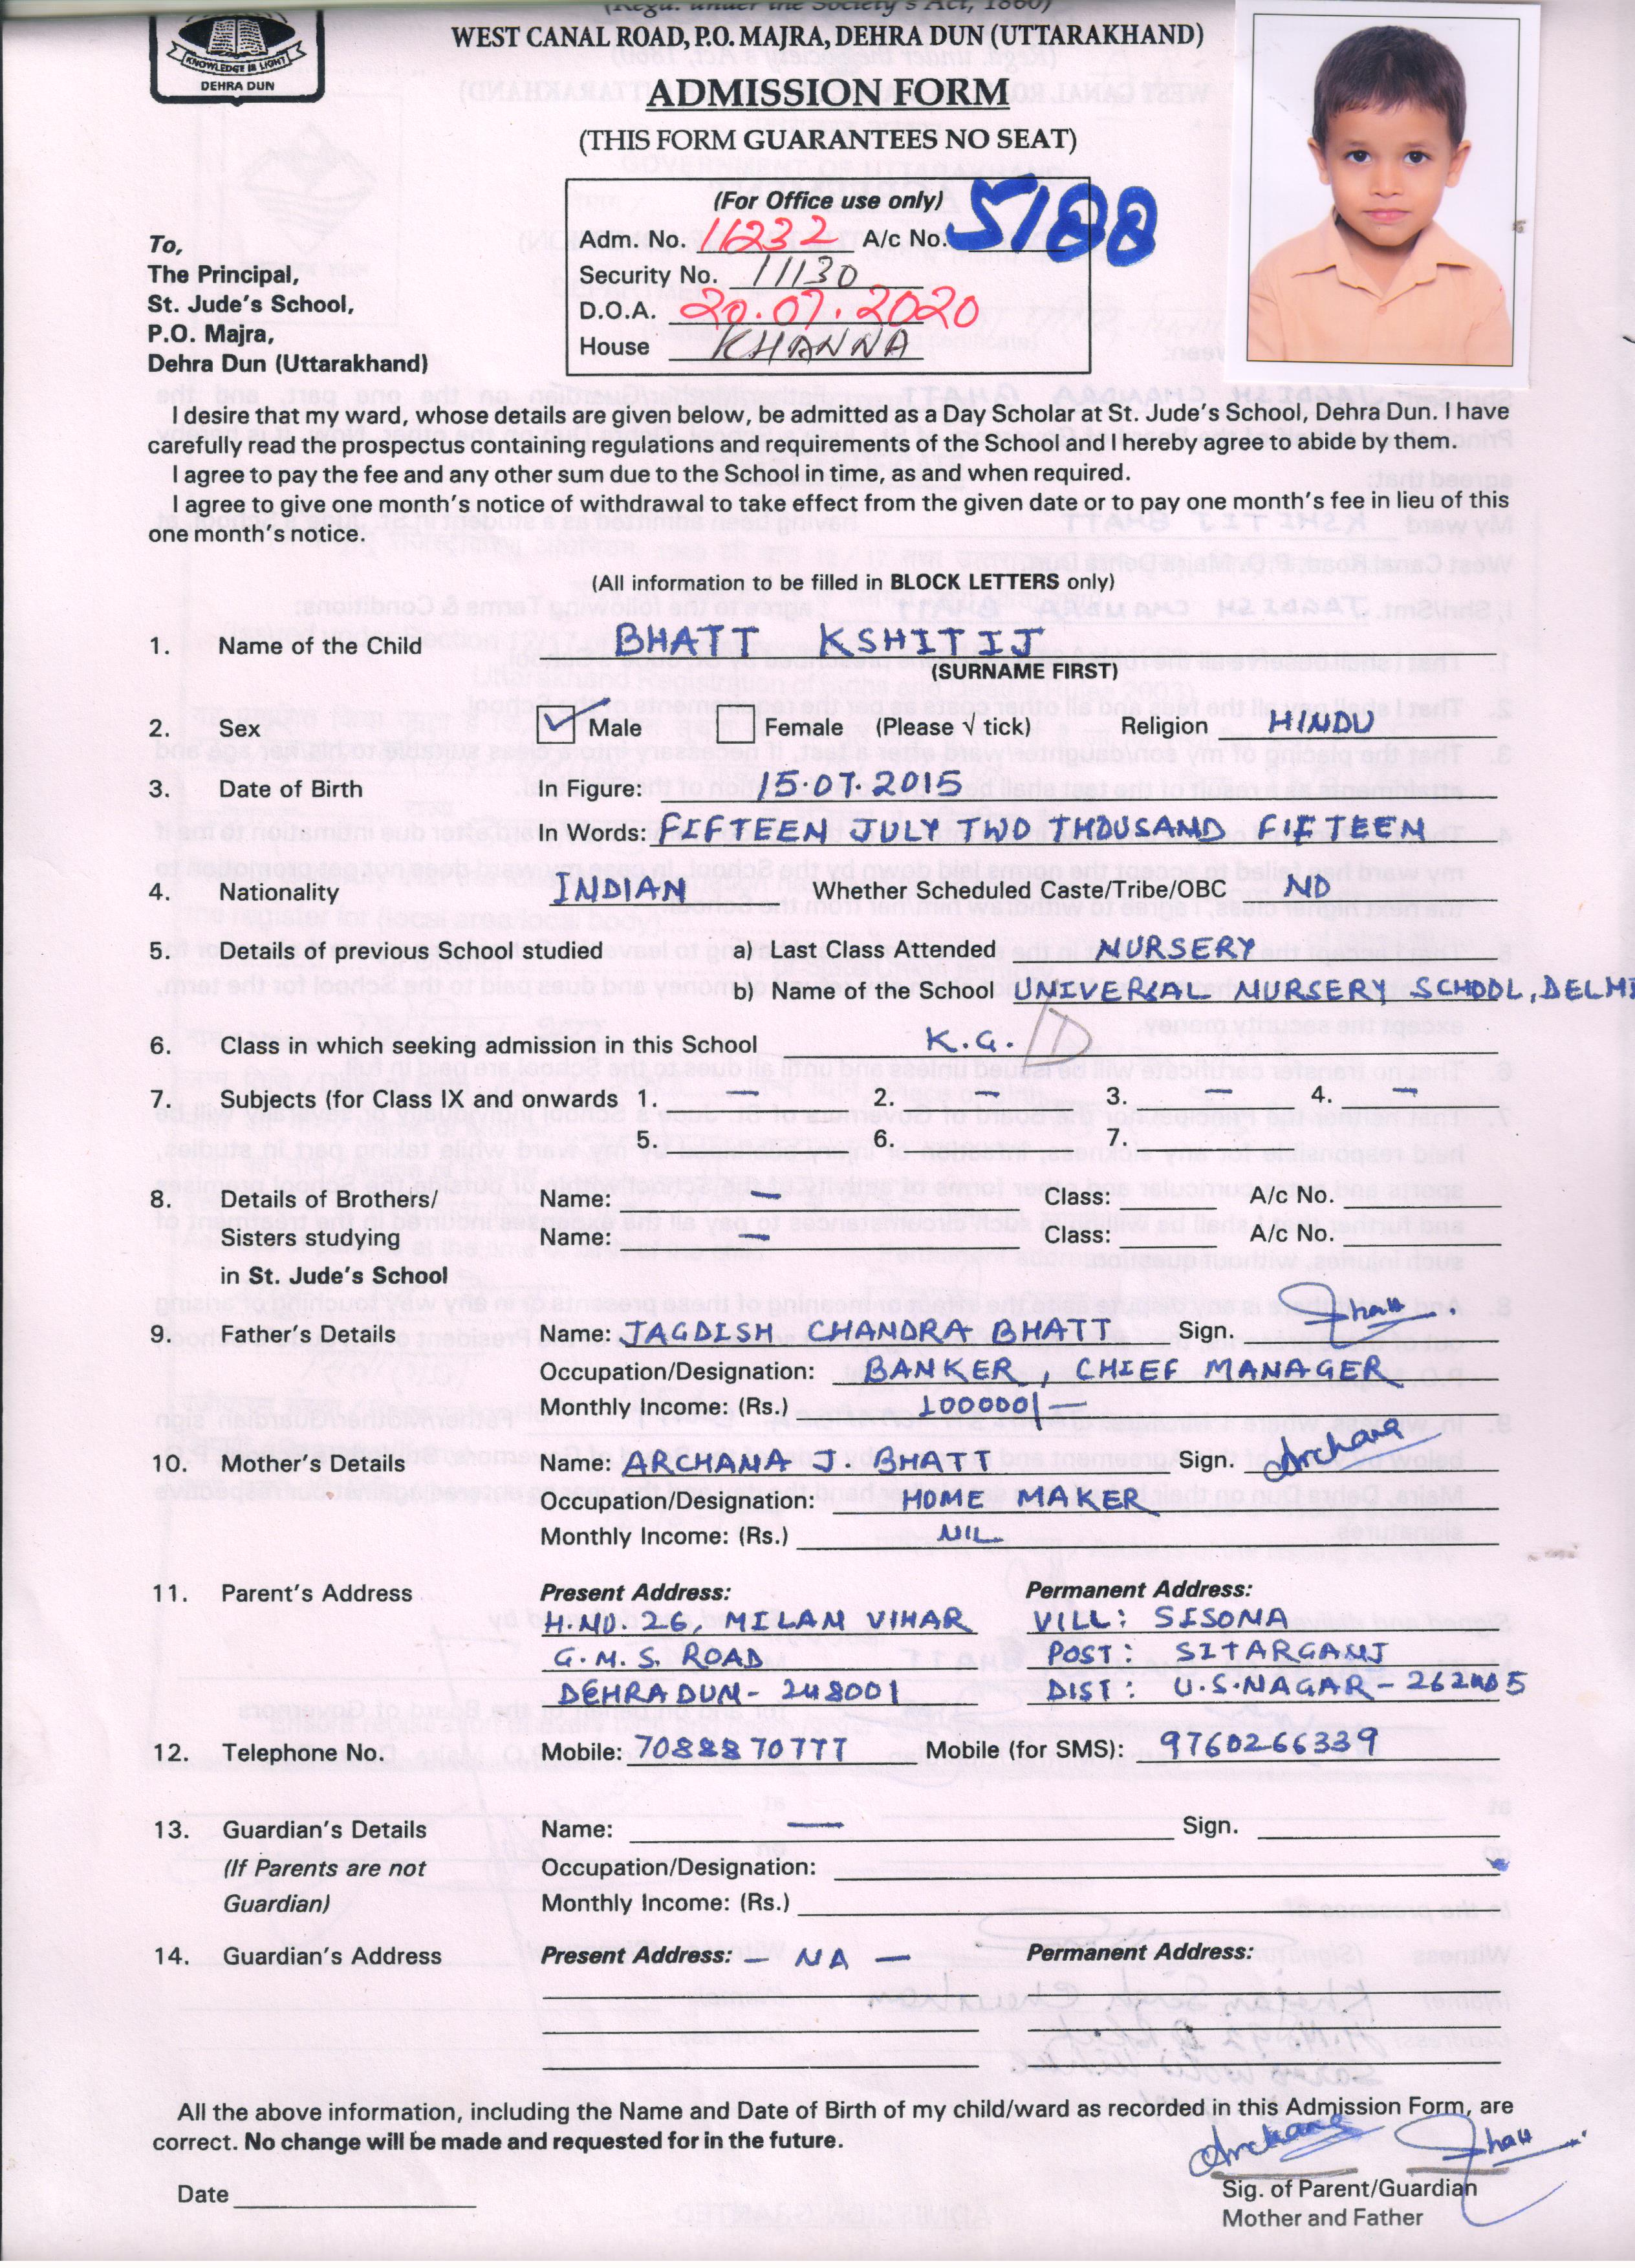 (Regd. under the Society's Act, 1860)
WEST CANAL ROAD, P.O. MAJRA, DEHRA DUN (UTTARAKHAND)
KNOWLEDGE IS LIGHT
DEHRA DUN
ADMISSION FORM
(THIS FORM GUARANTEES NO SEAT)
(For Office use only)
Adm. No. 11232 A/c No. 5188
Security No. 11130
D.O.A. 20.07.2020
House KHANNA
To,
The Principal,
St. Jude's School,
P.O. Majra,
Dehra Dun (Uttarakhand)
I desire that my ward, whose details are given below, be admitted as a Day Scholar at St. Jude's School, Dehra Dun. I have
carefully read the prospectus containing regulations and requirements of the School and I hereby agree to abide by them.
I agree to pay the fee and any other sum due to the School in time, as and when required.
I agree to give one month's notice of withdrawal to take effect from the given date or to pay one month's fee in lieu of this
one month's notice.
(All information to be filled in BLOCK LETTERS only)
1. Name of the Child BHATT KSHITIJ
(SURNAME FIRST)
2. Sex ✓ Male Female (Please √ tick) Religion HINDU
3. Date of Birth In Figure: 15.07.2015
In Words: FIFTEEN JULY TWO THOUSAND FIFTEEN
4. Nationality INDIAN Whether Scheduled Caste/Tribe/OBC NO
5. Details of previous School studied a) Last Class Attended NURSERY
b) Name of the School UNIVERSAL NURSERY SCHOOL, DELHI
6. Class in which seeking admission in this School K.G. D
7. Subjects (for Class IX and onwards 1. — 2. — 3. — 4. —
5. 6. 7.
8. Details of Brothers/ Name: — Class: A/c No.
Sisters studying Name: — Class: A/c No.
in St. Jude's School
9. Father's Details Name: JAGDISH CHANDRA BHATT Sign. Bhatt
Occupation/Designation: BANKER, CHIEF MANAGER
Monthly Income: (Rs.) 100000/—
10. Mother's Details Name: ARCHANA J. BHATT Sign. Archana
Occupation/Designation: HOME MAKER
Monthly Income: (Rs.) NIL
11. Parent's Address Present Address: Permanent Address:
H.NO. 26, MILAN VIHAR VILL: SISONA
G.M.S. ROAD POST: SITARGANJ
DEHRADUN- 248001 DIST: U.S.NAGAR- 262405
12. Telephone No. Mobile: 7088870777 Mobile (for SMS): 9760266339
13. Guardian's Details Name: — Sign.
(If Parents are not Occupation/Designation:
Guardian) Monthly Income: (Rs.)
14. Guardian's Address Present Address: – NA – Permanent Address:
All the above information, including the Name and Date of Birth of my child/ward as recorded in this Admission Form, are
correct. No change will be made and requested for in the future.
Archana Bhatt
Date Sig. of Parent/Guardian
Mother and Father